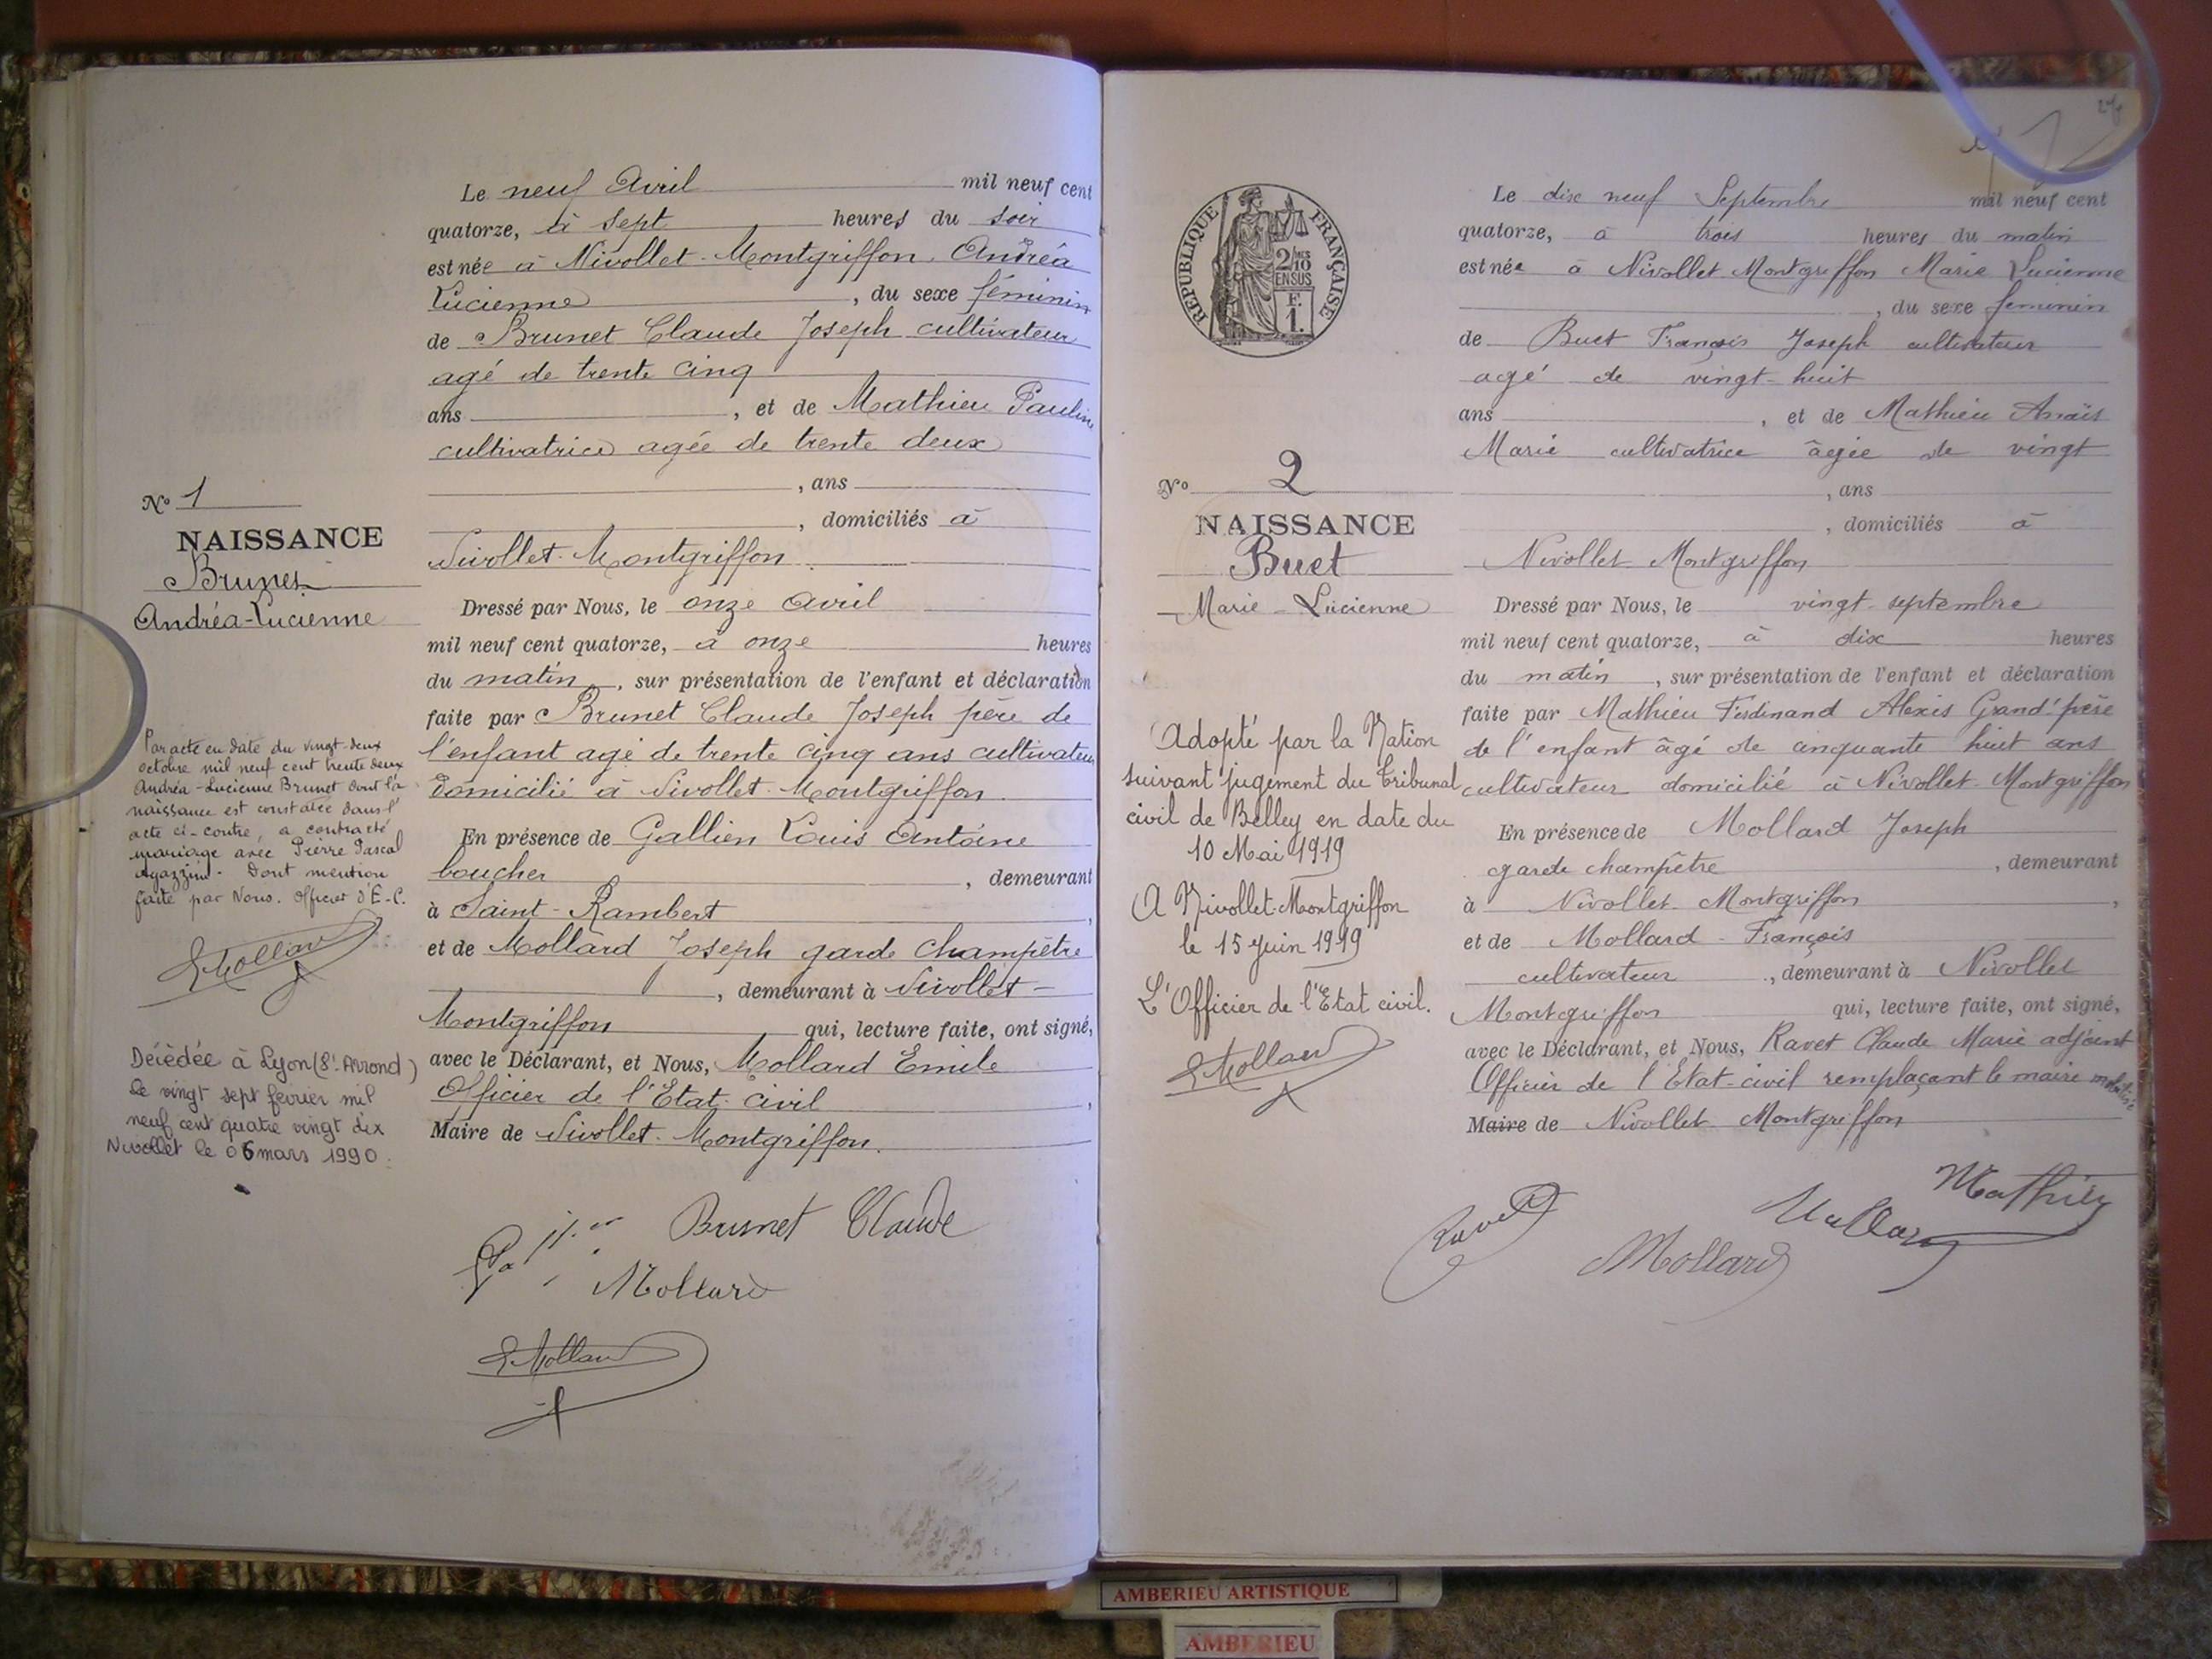 Le neuf Avril mil neuf cent
quatorze, à sept heures du soir
est née à Nivollet-Montgriffon Andréa
Lucienne, du sexe féminin
de Brunet Claude Joseph cultivateur
agé de trente cinq
ans, et de Mathieu Pauline
cultivatrice agée de trente deux
, ans
, domiciliés à
Nivollet-Montgriffon
N° 1
NAISSANCE
Brunet
Andréa-Lucienne
Dressé par Nous, le onze avril
mil neuf cent quatorze, à onze heures
du matin, sur présentation de l'enfant et déclaration
faite par Brunet Claude Joseph père de
l'enfant agé de trente cinq ans cultivateur
domicilié à Nivollet-Montgriffon
En présence de Gallien Louis Antoine
boucher, demeurant
à Saint-Rambert,
et de Mollard Joseph garde champêtre
, demeurant à Nivollet-
Montgriffon qui, lecture faite, ont signé,
avec le Déclarant, et Nous, Mollard Emile
Officier de l'Etat-civil,
Maire de Nivollet-Montgriffon.
Par acte en date du vingt-deux
octobre mil neuf cent trente deux
Andréa-Lucienne Brunet dont la
naissance est constatée dans l'
acte ci-contre, a contracté
mariage avec Pierre Pascal
Agazzini. Dont mention
faite par Nous. Officier d'E-C.
EMollard
Décèdée à Lyon (8e Arrond)
le vingt sept fevrier mil
neuf cent quatre vingt dix
Nivollet le 06 mars 1990.
Brunet Claude
Mollard
EMollard
24
RÉPUBLIQUE FRANÇAISE
2/10
EN SUS
F.
1.
Le dix neuf Septembre mil neuf cent
quatorze, à trois heures du matin
est née à Nivollet Montgriffon Marie Lucienne
, du sexe feminin
de Buet François Joseph cultivateur
agé de vingt-huit
ans, et de Mathieu Anaïs
Marie cultivatrice âgée de vingt
, ans
, domiciliés à
Nivollet Montgriffon
N° 2
NAISSANCE
Buet
Marie-Lucienne
Dressé par Nous, le vingt septembre
mil neuf cent quatorze, à dix heures
du matin, sur présentation de l'enfant et déclaration
faite par Mathieu Ferdinand Alexis Grand'père
de l'enfant âgé de cinquante huit ans
cultivateur domicilié à Nivollet-Montgriffon
En présence de Mollard Joseph
garde champêtre, demeurant
à Nivollet Montgriffon,
et de Mollard François
cultivateur, demeurant à Nivollet
Montgriffon qui, lecture faite, ont signé,
avec le Déclarant, et Nous, Ravet Claude Marie adjoint
Officier de l'Etat-civil remplaçant le maire mobilisé
Maire de Nivollet Montgriffon
Adopté par la Nation
suivant jugement du Tribunal
civil de Belley en date du
10 Mai 1919
A Nivollet-Montgriffon
le 15 Juin 1919
L'Officier de l'Etat civil.
EMollard
Mathieu
Ravet
Mollard
Mollard
AMBERIEU ARTISTIQUE
AMBERIEU